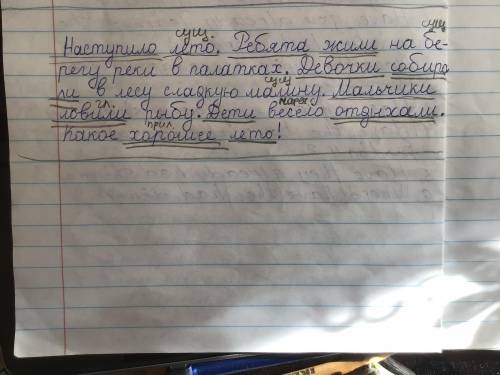 сущ. сущ
Наступило лето. Ребята жили на бе-
регу реки в палатках. Девочки собира
сущ
ли в лесу сладкую малину. Мальчики
гл. нареч
ловили рыбу. Дети весело отдыхали.
прил.
Какое хорошее лето!